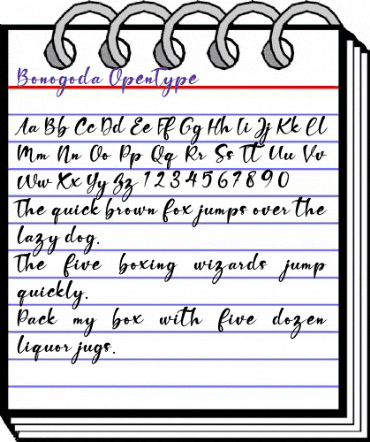 Bonogoda OpenType
Aa Bb Cc Dd Ee Ff Gg Hh Ii Jj Kk Ll
Mm Nn Oo Pp Qq Rr Ss Tt Uu Vv
Ww Xx Yy Zz 1234567890
The quick brown fox jumps over the
lazy dog.
The five boxing wizards jump
quickly.
Pack my box with five dozen
liquor jugs.